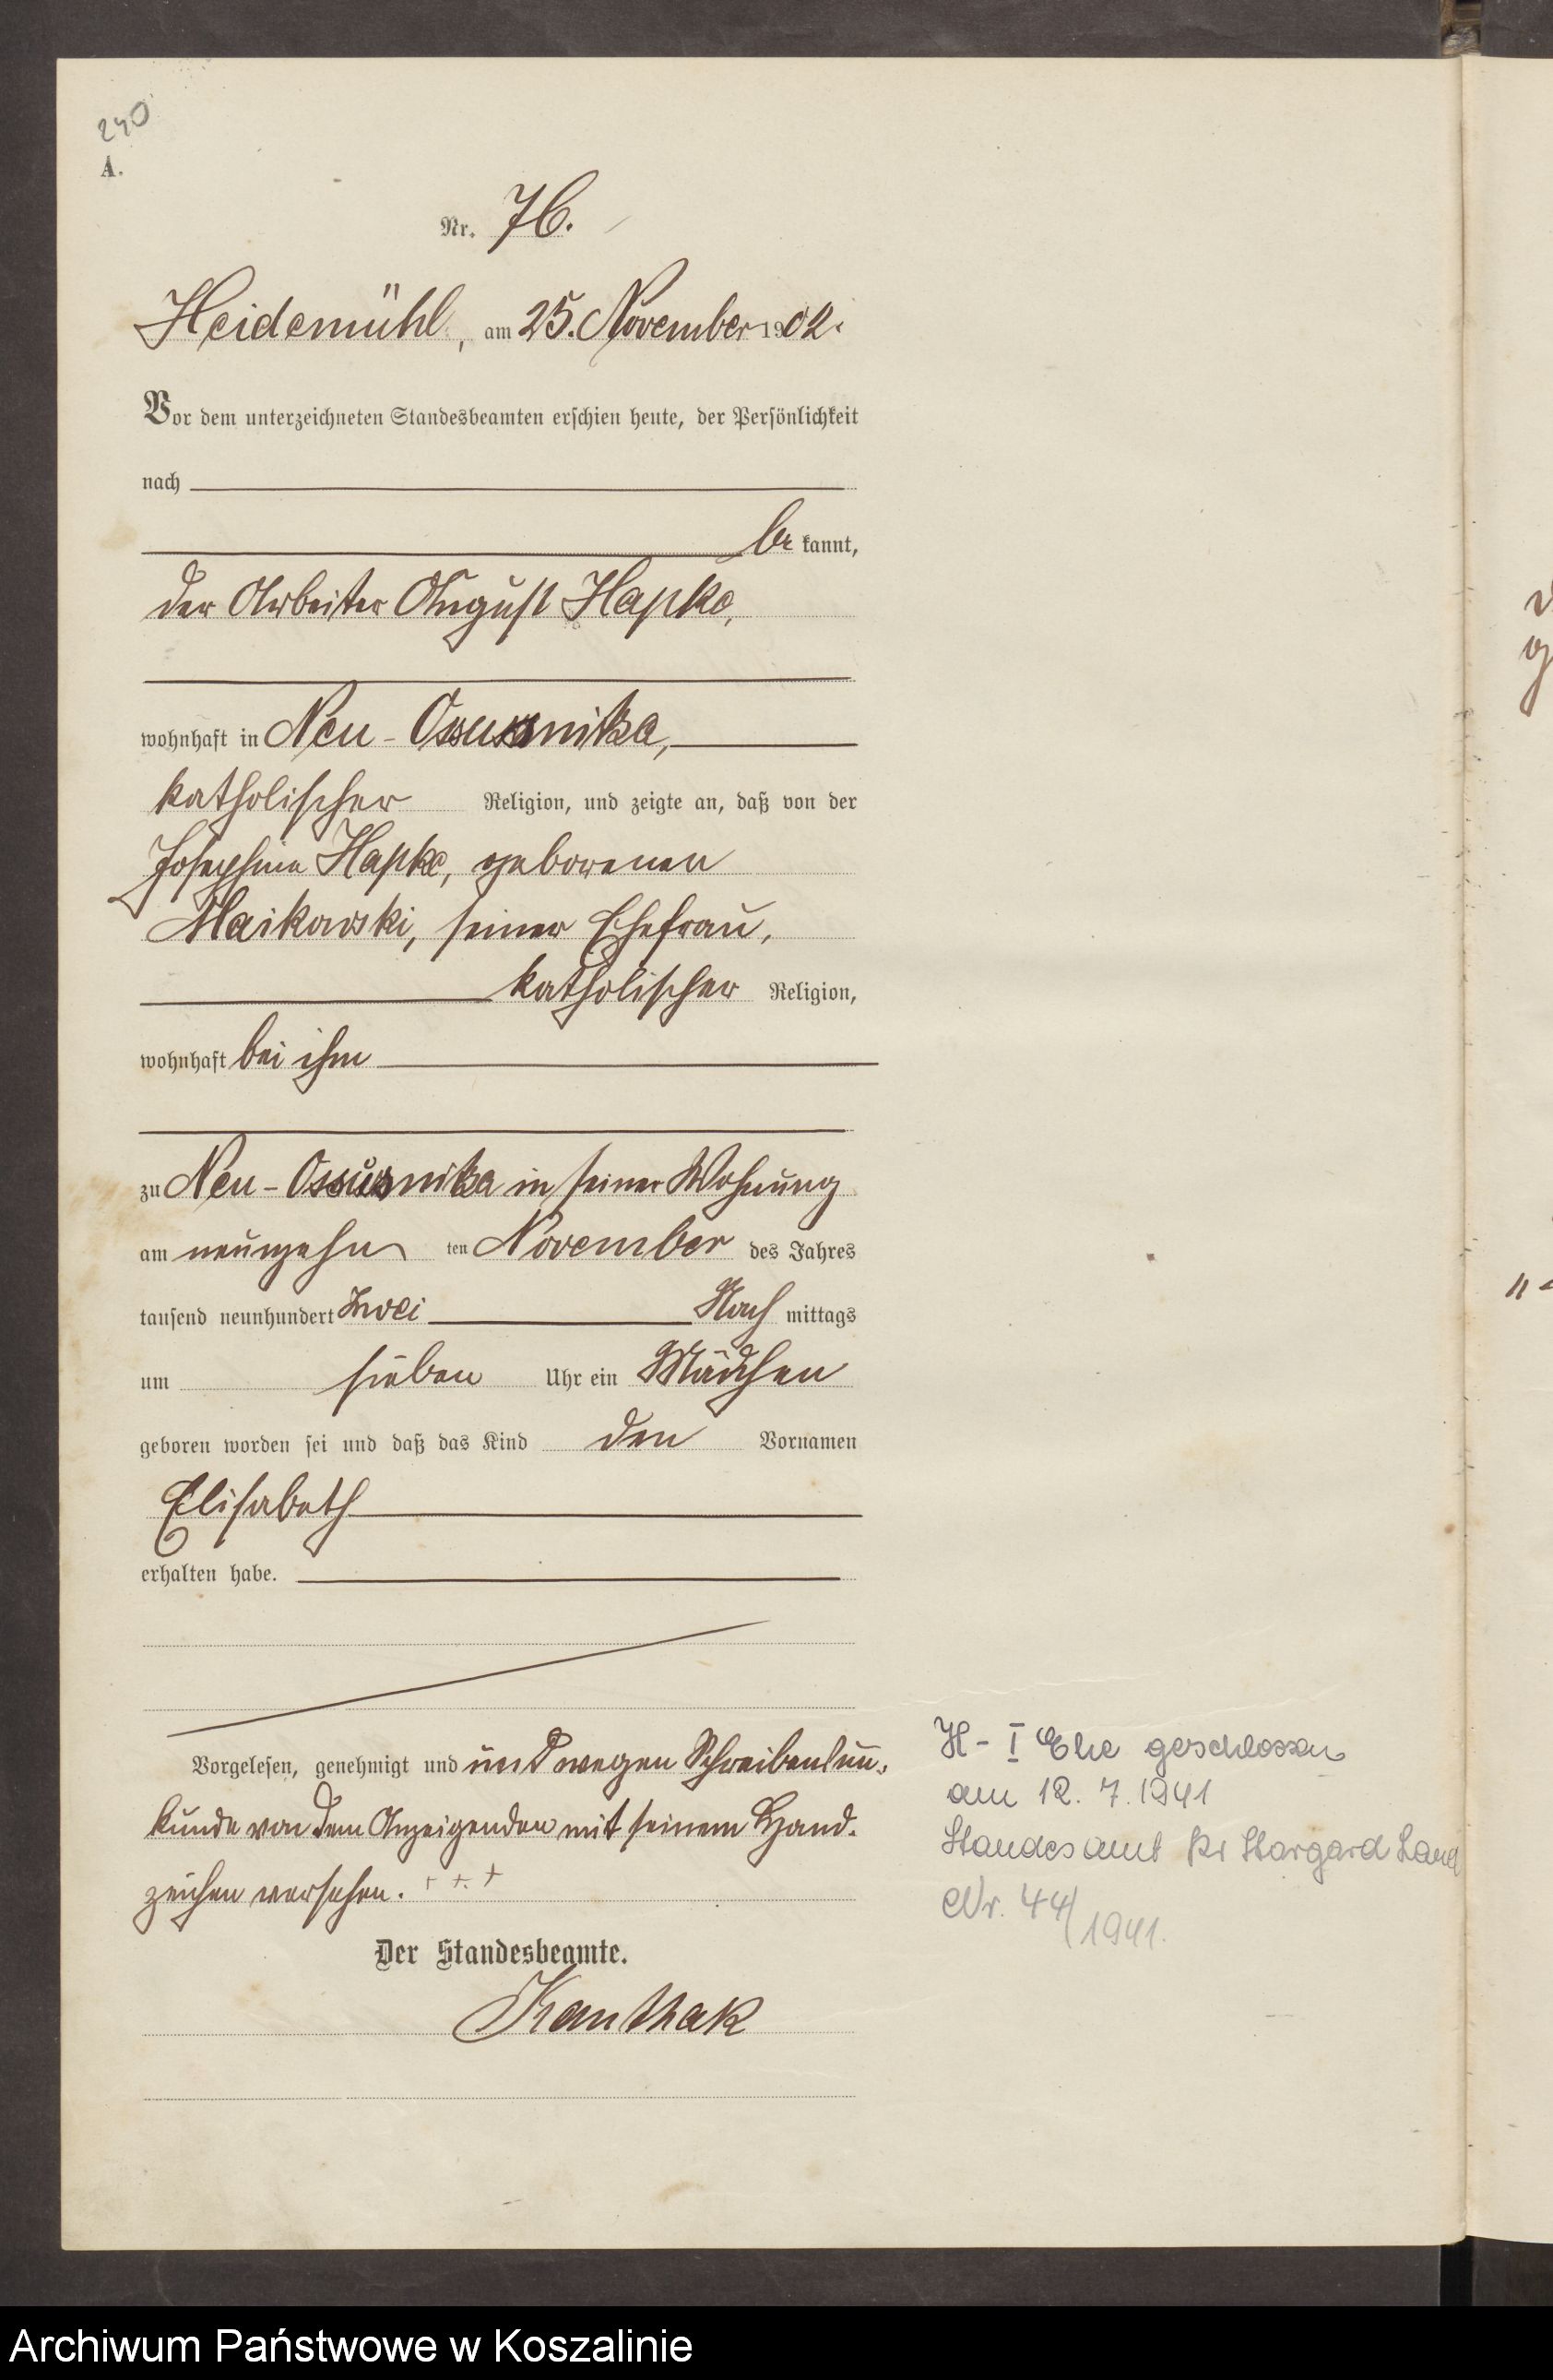 240
A.
Nr. 76.
Heidemühl, am 25. November 1902.
Vor dem unterzeichneten Standesbeamten erschien heute, der Persönlichkeit
nach
be kannt,
der Arbeiter August Hapke,
wohnhaft in Neu-Ossusnitza,
katholischer Religion, und zeigte an, daß von der
Josephine Hapke, geborenen
Maikowski, seiner Ehefrau,
katholischer Religion,
wohnhaft bei ihm
zu Neu-Ossusnitza in seiner Wohnung
am neunzehn ten November des Jahres
tausend neunhundert zwei Nach mittags
um sieben Uhr ein Mädchen
geboren worden sei und daß das Kind den Vornamen
Elisabeth
erhalten habe.
Vorgelesen, genehmigt und und wegen Schreibensun-
kunde von dem Anzeigenden mit seinem Hand-
zeichen versehen. + + +
Der Standesbeamte.
Kanthak
H - I Ehe geschlossen
am 12. 7. 1941
Standesamt Pr Stargard Land
Nr. 44/1941.
Archiwum Państwowe w Koszalinie